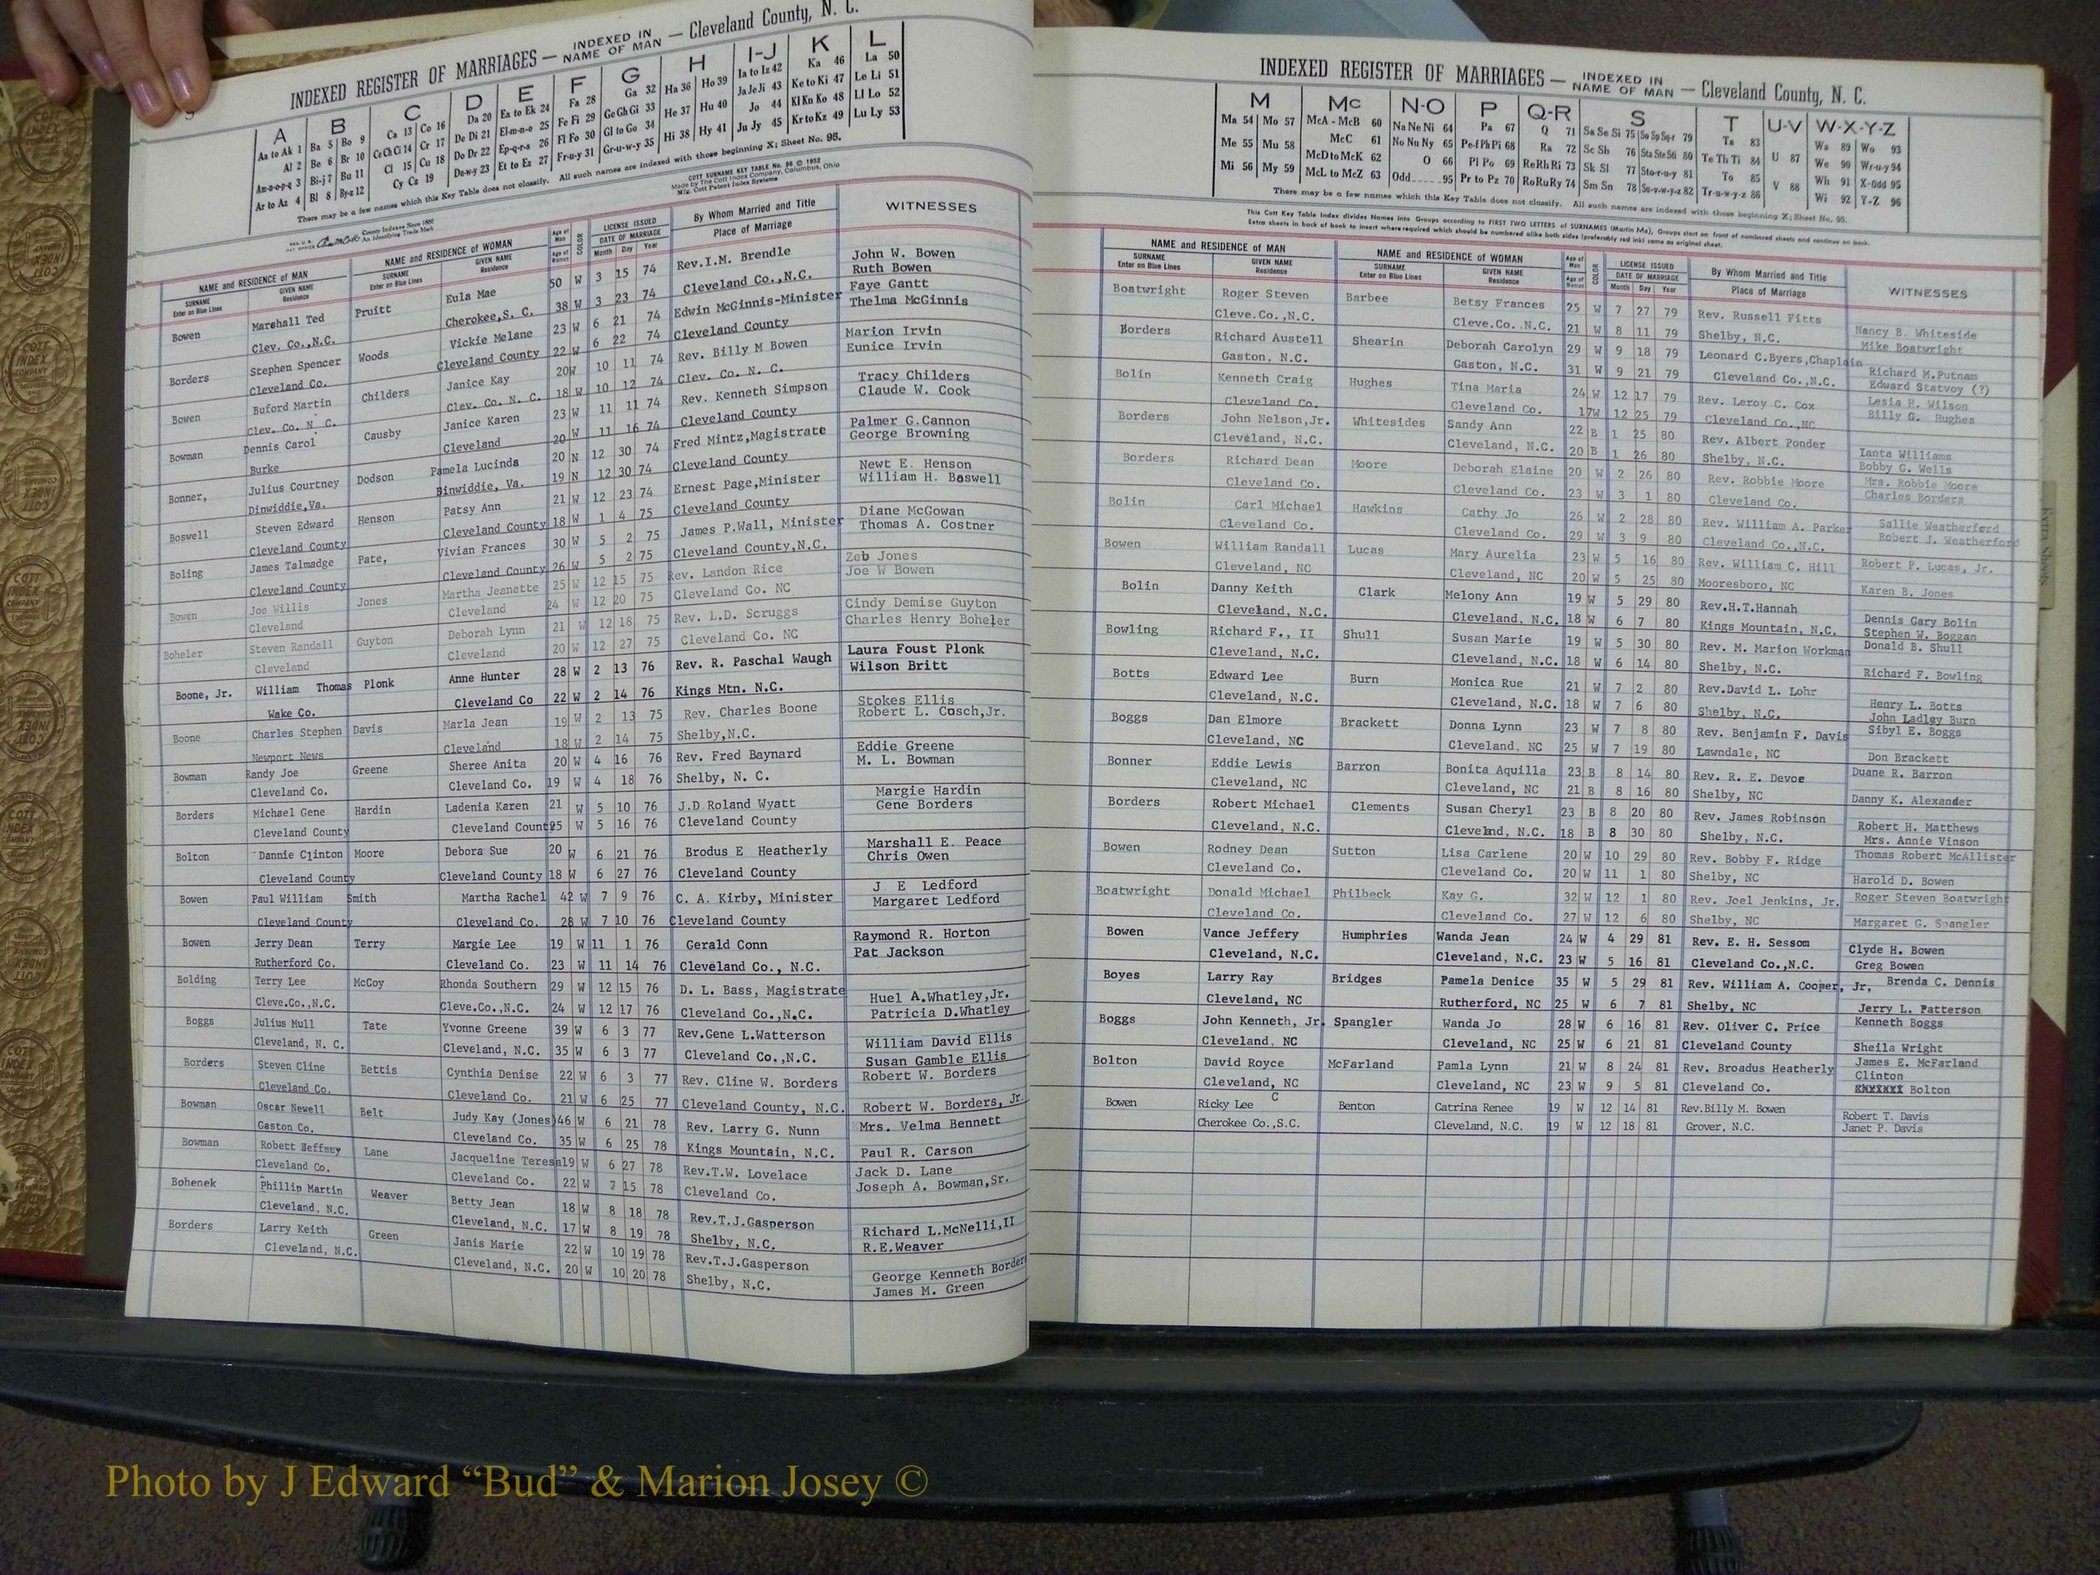 INDEXED REGISTER OF MARRIAGES — INDEXED IN NAME OF MAN — Cleveland County, N. C.
A B C D E F G H I-J K L
Aa to Ak 1 Ba 5 Bo 9 Ca 13 Co 16 Da 20 Ea to Ek 24 Fa 28 Ga 32 Ha 36 Ho 39 Ia to Iz 42 Ka 46 La 50
Al 2 Be 6 Br 10 Ce Ch Ci 14 Cr 17 De Di 21 El-m-n-o 25 Fe Fi 29 Ge Gh Gi 33 He 37 Hu 40 Ja Je Ji 43 Ke to Ki 47 Le Li 51
Am-n-o-p-q 3 Bi-j 7 Bu 11 Cl 15 Cu 18 Do Dr 22 Ep-q-r-s 26 Fl Fo 30 Gl to Go 34 Hi 38 Hy 41 Jo 44 Kl Kn Ko 48 Ll Lo 52
Ar to Az 4 Bl 8 By-z 12 Cy Cz 19 Du-w-y 23 Et to Ez 27 Fr-u-y 31 Gr-u-w-y 35 Ju Jy 45 Kr to Kz 49 Lu Ly 53
There may be a few names which this Key Table does not classify. All such names are indexed with those beginning X; Sheet No. 95.
COTT SURNAME KEY TABLE No. 96 © 1952
Made by The Cott Index Company, Columbus, Ohio
Mfg. Cott Patent Index Systems
County Indexes Since 1888
An Identifying Trade Mark
NAME and RESIDENCE of MAN NAME and RESIDENCE of WOMAN Age of Man Age of Woman COLOR LICENSE ISSUED DATE OF MARRIAGE Month Day Year By Whom Married and Title Place of Marriage WITNESSES
SURNAME Enter on Blue Lines GIVEN NAME Residence SURNAME Enter on Blue Lines GIVEN NAME Residence
Bowen Marshall Ted Pruitt Eula Mae 50 W 3 15 74 Rev.I.M. Brendle John W. Bowen
Clev. Co.,N.C. Cherokee,S. C. 38 W 3 23 74 Cleveland Co.,N.C. Ruth Bowen
Borders Stephen Spencer Woods Vickie Melane 23 W 6 21 74 Edwin McGinnis-Minister Faye Gantt
Cleveland Co. Cleveland County 22 W 6 22 74 Cleveland County Thelma McGinnis
Bowen Buford Martin Childers Janice Kay 20W 10 11 74 Rev. Billy M Bowen Marion Irvin
Clev. Co. N. C. Clev. Co. N. C. 18 W 10 12 74 Clev. Co. N. C. Eunice Irvin
Bowman Dennis Carol Causby Janice Karen 23 W 11 11 74 Rev. Kenneth Simpson Tracy Childers
Burke Cleveland 20 W 11 16 74 Cleveland County Claude W. Cook
Bonner, Julius Courtney Dodson Pamela Lucinda 20 N 12 30 74 Fred Mintz,Magistrate Palmer G.Cannon
Dinwiddie,Va. Binwiddie, Va. 19 N 12 30 74 Cleveland County George Browning
Boswell Steven Edward Henson Patsy Ann 21 W 12 23 74 Ernest Page,Minister Newt E. Henson
Cleveland County Cleveland County 18 W 1 4 75 Cleveland County William H. Boswell
Boling James Talmadge Pate, Vivian Frances 30 W 5 2 75 James P.Wall, Minister Diane McGowan
Cleveland County Cleveland County 26 W 5 2 75 Cleveland County,N.C. Thomas A. Costner
Bowen Joe Willis Jones Martha Jeanette 25 W 12 15 75 Rev. Landon Rice Zeb Jones
Cleveland Cleveland 24 W 12 20 75 Cleveland Co. NC Joe W Bowen
Boheler Steven Randall Guyton Deborah Lynn 21 W 12 18 75 Rev. L.D. Scruggs Cindy Demise Guyton
Cleveland Cleveland 20 W 12 27 75 Cleveland Co. NC Charles Henry Boheler
Boone, Jr. William Thomas Plonk Anne Hunter 28 W 2 13 76 Rev. R. Paschal Waugh Laura Foust Plonk
Wake Co. Cleveland Co 22 W 2 14 76 Kings Mtn. N.C. Wilson Britt
Boone Charles Stephen Davis Marla Jean 19 W 2 13 75 Rev. Charles Boone Stokes Ellis
Newport News Cleveland 18 W 2 14 75 Shelby,N.C. Robert L. Cosch,Jr.
Bowman Randy Joe Greene Sheree Anita 20 W 4 16 76 Rev. Fred Baynard Eddie Greene
Cleveland Co. Cleveland Co. 19 W 4 18 76 Shelby, N. C. M. L. Bowman
Borders Michael Gene Hardin Ladenia Karen 21 W 5 10 76 J.D Roland Wyatt Margie Hardin
Cleveland County Cleveland County 25 W 5 16 76 Cleveland County Gene Borders
Bolton Dannie Clinton Moore Debora Sue 20 W 6 21 76 Brodus E Heatherly Marshall E. Peace
Cleveland County Cleveland County 18 W 6 27 76 Cleveland County Chris Owen
Bowen Paul William Smith Martha Rachel 42 W 7 9 76 C. A. Kirby, Minister J E Ledford
Cleveland County Cleveland Co. 28 W 7 10 76 Cleveland County Margaret Ledford
Bowen Jerry Dean Terry Margie Lee 19 W 11 1 76 Gerald Conn Raymond R. Horton
Rutherford Co. Cleveland Co. 23 W 11 14 76 Cleveland Co., N.C. Pat Jackson
Bolding Terry Lee McCoy Rhonda Southern 29 W 12 15 76 D. L. Bass, Magistrate Huel A.Whatley,Jr.
Cleve.Co.,N.C. Cleve.Co.,N.C. 24 W 12 17 76 Cleveland Co.,N.C. Patricia D.Whatley
Boggs Julius Mull Tate Yvonne Greene 39 W 6 3 77 Rev.Gene L.Watterson William David Ellis
Cleveland, N. C. Cleveland, N.C. 35 W 6 3 77 Cleveland Co.,N.C. Susan Gamble Ellis
Borders Steven Cline Bettis Cynthia Denise 22 W 6 3 77 Rev. Cline W. Borders Robert W. Borders
Cleveland Co. Cleveland Co. 21 W 6 25 77 Cleveland County, N.C. Robert W. Borders, Jr.
Bowman Oscar Newell Belt Judy Kay (Jones) 46 W 6 21 78 Rev. Larry G. Nunn Mrs. Velma Bennett
Gaston Co. Cleveland Co. 35 W 6 25 78 Kings Mountain, N.C. Paul R. Carson
Bowman Robett Heffeey Lane Jacqueline Teresa 19 W 6 27 78 Rev.T.W. Lovelace Jack D. Lane
Cleveland Co. Cleveland Co. 22 W 7 15 78 Cleveland Co. Joseph A. Bowman,Sr.
Bohenek Phillip Martin Weaver Betty Jean 18 W 8 18 78 Rev.T.J.Gasperson Richard L.McNelli,II
Cleveland, N.C. Cleveland, N.C. 17 W 8 19 78 Shelby, N.C. R.E.Weaver
Borders Larry Keith Green Janis Marie 22 W 10 19 78 Rev.T.J.Gasperson George Kenneth Borders
Cleveland, N.C. Cleveland, N.C. 20 W 10 20 78 Shelby, N.C. James M. Green
INDEXED REGISTER OF MARRIAGES — INDEXED IN NAME OF MAN — Cleveland County, N. C.
M Mc N-O P Q-R S T U-V W-X-Y-Z
Ma 54 Mo 57 McA - McB 60 Na Ne Ni 64 Pa 67 Q 71 Sa Se Si 75 So Sp Sq-r 79 Ta 83 Wa 89 Wo 93
Me 55 Mu 58 McC 61 No Nu Ny 65 Pe-f Ph Pi 68 Ra 72 Sc Sh 76 Sta Ste Sti 80 Te Th Ti 84 U 87 We 90 Wr-u-y 94
Mi 56 My 59 McD to McK 62 O 66 Pl Po 69 Re Rh Ri 73 Sk Sl 77 Sto-r-u-y 81 To 85 Wh 91 X-Odd 95
McL to McZ 63 Odd 95 Pr to Pz 70 Ro Ru Ry 74 Sm Sn 78 Su-v-w-y-z 82 Tr-u-w-y-z 86 V 88 Wi 92 Y-Z 96
There may be a few names which this Key Table does not classify. All such names are indexed with those beginning X; Sheet No. 95.
This Cott Key Table Index divides Names into Groups according to FIRST TWO LETTERS of SURNAMES (Martin Ma), Groups start on front of numbered sheets and continue on back.
Extra sheets in back of book to insert where required which should be numbered alike both sides (preferably red ink) same as original sheet.
NAME and RESIDENCE OF MAN NAME and RESIDENCE of WOMAN Age of Man Age of Woman COLOR LICENSE ISSUED DATE OF MARRIAGE Month Day Year By Whom Married and Title Place of Marriage WITNESSES
SURNAME Enter on Blue Lines GIVEN NAME Residence SURNAME Enter on Blue Lines GIVEN NAME Residence
Boatwright Roger Steven Barbee Betsy Frances 25 W 7 27 79 Rev. Russell Fitts Nancy B. Whiteside
Cleve.Co.,N.C. Cleve.Co. N.C. 21 W 8 11 79 Shelby, N.C. Mike Boatwright
Borders Richard Austell Shearin Deborah Carolyn 29 W 9 18 79 Leonard C.Byers,Chaplain Richard M.Putnam
Gaston, N.C. Gaston, N.C. 31 W 9 21 79 Cleveland Co.,N.C. Edward Statvoy (?)
Bolin Kenneth Craig Hughes Tina Maria 24 W 12 17 79 Rev. Leroy C. Cox Lesia H. Wilson
Cleveland Co. Cleveland Co. 17W 12 25 79 Cleveland Co.,NC Billy G. Hughes
Borders John Nelson,Jr. Whitesides Sandy Ann 22 B 1 25 80 Rev. Albert Ponder Ianta Williams
Cleveland, N.C. Cleveland, N.C. 20 B 1 26 80 Shelby, N.C. Bobby G. Wells
Borders Richard Dean Moore Deborah Elaine 20 W 2 26 80 Rev. Robbie Moore Mrs. Robbie Moore
Cleveland Co. Cleveland Co. 23 W 3 1 80 Cleveland Co. Charles Borders
Bolin Carl Michael Hawkins Cathy Jo 26 W 2 28 80 Rev. William A. Parker Sallie Weatherford
Cleveland Co. Cleveland Co. 29 W 3 9 80 Cleveland Co.,N.C. Robert J. Weatherford
Bowen William Randall Lucas Mary Aurelia 23 W 5 16 80 Rev. William C. Hill Robert P. Lucas, Jr.
Cleveland, NC Cleveland, NC 20 W 5 25 80 Mooresboro, NC Karen B. Jones
Bolin Danny Keith Clark Melony Ann 19 W 5 29 80 Rev.H.T.Hannah Dennis Gary Bolin
Cleveland, N.C. Cleveland, N.C. 18 W 6 7 80 Kings Mountain, N.C. Stephen W. Boggan
Bowling Richard F., II Shull Susan Marie 19 W 5 30 80 Rev. M. Marion Workman Donald B. Shull
Cleveland, N.C. Cleveland, N.C. 18 W 6 14 80 Shelby, N.C. Richard F. Bowling
Botts Edward Lee Burn Monica Rue 21 W 7 2 80 Rev.David L. Lohr Henry L. Botts
Cleveland, N.C. Cleveland, N.C. 18 W 7 6 80 Shelby, N.C. John Ladley Burn
Boggs Dan Elmore Brackett Donna Lynn 23 W 7 8 80 Rev. Benjamin F. Davis Sibyl E. Boggs
Cleveland, NC Cleveland, NC 25 W 7 19 80 Lawndale, NC Don Brackett
Bonner Eddie Lewis Barron Bonita Aquilla 23 B 8 14 80 Rev. R. E. Devoe Duane R. Barron
Cleveland, NC Cleveland, NC 21 B 8 16 80 Shelby, NC Danny K. Alexander
Borders Robert Michael Clements Susan Cheryl 23 B 8 20 80 Rev. James Robinson Robert H. Matthews
Cleveland, N.C. Cleveland, N.C. 18 B 8 30 80 Shelby, N.C. Mrs. Annie Vinson
Bowen Rodney Dean Sutton Lisa Carlene 20 W 10 29 80 Rev. Bobby F. Ridge Thomas Robert McAllister
Cleveland Co. Cleveland Co. 20 W 11 1 80 Shelby, NC Harold D. Bowen
Boatwright Donald Michael Philbeck Kay G. 32 W 12 1 80 Rev. Joel Jenkins, Jr. Roger Steven Boatwright
Cleveland Co. Cleveland Co. 27 W 12 6 80 Shelby, NC Margaret G. Spangler
Bowen Vance Jeffery Humphries Wanda Jean 24 W 4 29 81 Rev. E. H. Sessom Clyde H. Bowen
Cleveland, N.C. Cleveland, N.C. 23 W 5 16 81 Cleveland Co.,N.C. Greg Bowen
Boyes Larry Ray Bridges Pamela Denice 35 W 5 29 81 Rev. William A. Cooper, Jr, Brenda C. Dennis
Cleveland, NC Rutherford, NC 25 W 6 7 81 Shelby, NC Jerry L. Patterson
Boggs John Kenneth, Jr. Spangler Wanda Jo 28 W 6 16 81 Rev. Oliver C. Price Kenneth Boggs
Cleveland, NC Cleveland, NC 25 W 6 21 81 Cleveland County Sheila Wright
Bolton David Royce McFarland Pamla Lynn 21 W 8 24 81 Rev. Broadus Heatherly James E. McFarland
Cleveland, NC Cleveland, NC 23 W 9 5 81 Cleveland Co. Clinton Bolton
Bowen Ricky Lee C Benton Catrina Renee 19 W 12 14 81 Rev.Billy M. Bowen Robert T. Davis
Cherokee Co.,S.C. Cleveland, N.C. 19 W 12 18 81 Grover, N.C. Janet P. Davis
Photo by J Edward “Bud” & Marion Josey ©